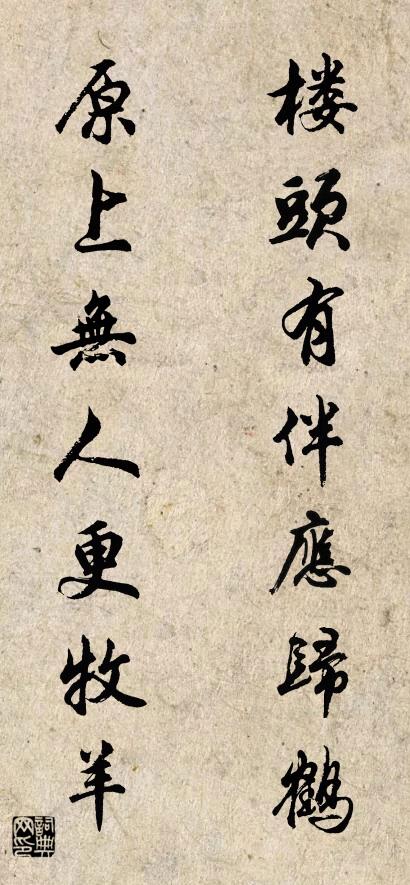 楼頭有伴應歸鶴
原上無人更牧羊
詞典网印